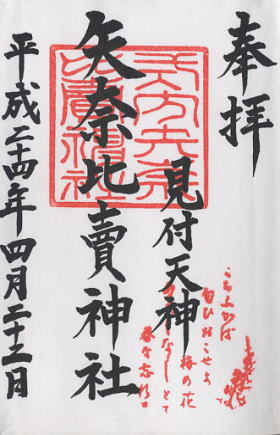 奉拝
見付天神
矢奈比賣神社
平成二十四年四月二十三日
こちふかば
匂ひおこせよ
梅の花
なしとて
春な忘れそ